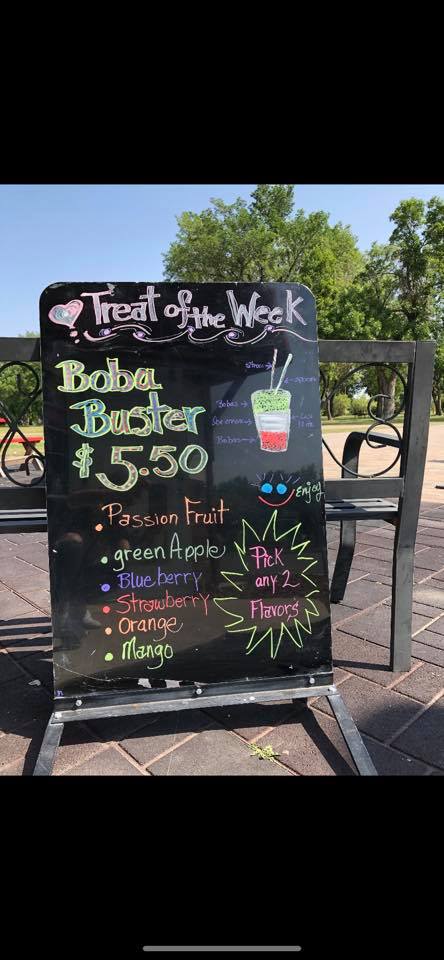 Treat of the Week
Boba
Buster
$5.50
Straw
Spoon
Bobas
Ice cream
Bobas
Enjoy
Passion Fruit
green Apple
Blueberry
Strawberry
Orange
Mango
Pick
any 2
Flavors